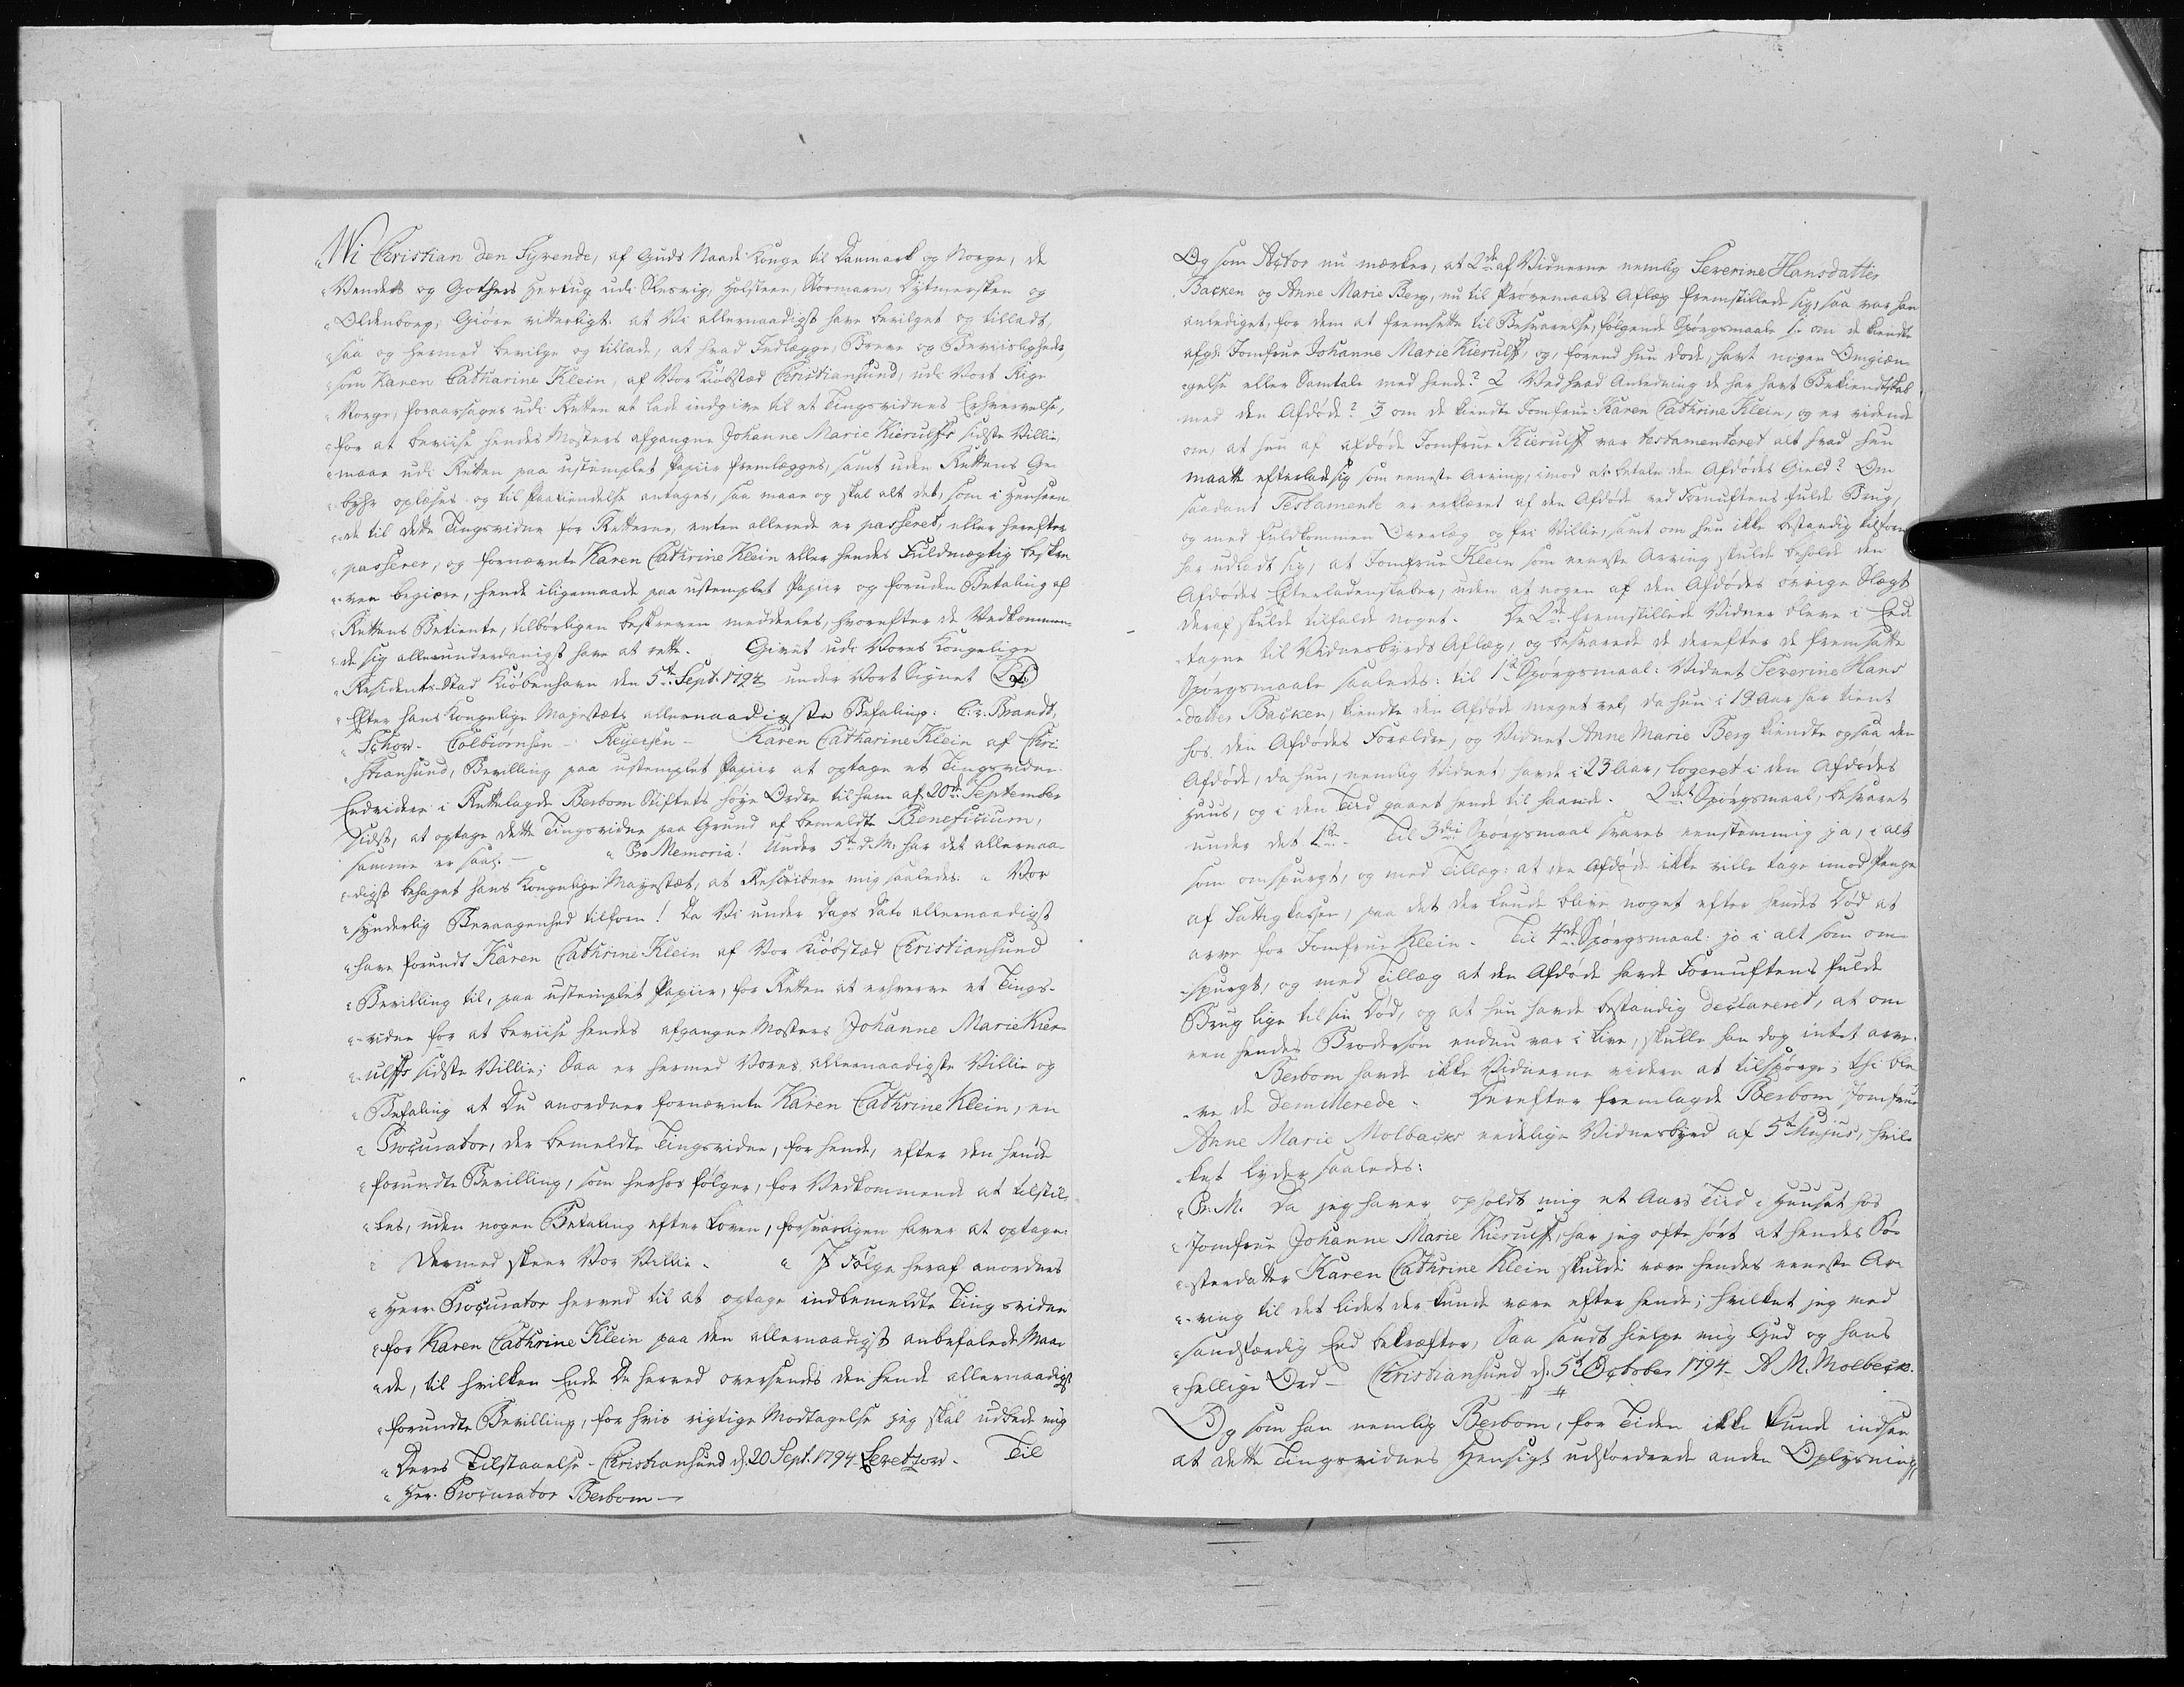 "Wi Christian den Syvende, af Guds Naade Konge til Danmark og Norge, de
"Venders og Gothers Hertug udi Slesvig, Holsteen, Stormarn, Dytmersken og
"Oldenborg, Giøre vitterligt: at Vi allernaadigst have bevilget og tilladt,
"saa og hermed bevilge og tillade, at hvad Indlægge, Breve og Beviisligheder
"som Karen Catharine Klein, af Vor Kiøbstæd Christiansund, udi Vort Rige
"Norge, foraarsages udi Retten at lade indgive til et Tingsvidnes Erhvervelse,
"for at beviise hendes Mosters afgangne Johanne Marie Kierulffs sidste Villie,
"maae udi Retten paa ustemplet Papiir fremlægges, samt uden Rettens Ge-
"byhr oplæses og til Paakiendelse antages, saa maae og skal alt det, som i Henseen-
"de til dette Tingsvidne for Retterne, enten allerede er passeret, eller herefter
"passerer, og fornævnte Karen Cathrine Klein eller hendes Fuldmægtig beskre-
"ven begiære, hende iligemaade paa ustemplet Papiir og foruden Betaling af
"Rettens Betiente, tilbørligen beskreven meddeeles, hvorefter de Vedkommen-
"de sig allerunderdanigst have at rette. Givet udi Vores Kongelige
"Residents-Stad Kiøbenhavn den 5te Sept. 1794 under Vort Signet (LS)
"Efter hans Kongelige Majestæts allernaadigste Befaling. Brandt,
"Schow - Colbiørnsen - Reyersen - Karen Catharine Klein af Chri-
"stiansund, Bevilling paa ustemplet Papiir at optage et Tingsvidne.
Endvidere i Rettelagde Besbom Stiftets høye Ordre til ham af 20de September
sidst, at optage dette Tingsvidne paa Grund af bemeldte Beneficium,
samme er saal: - "Pro Memoria! Under 5te d. M. har det allernaa-
"digst behaget hans Kongelige Mayestæt, at Rescribere mig saaledes: "Vor
"synderlig Bevaagenhed tilforn! Da Vi under Dags Dato allernaadigst
"have forundt Karen Cathrine Klein af Vor Kiøbstæd Christiansund
"Bevilling til, paa ustemplet Papiir, for Retten at erhverve et Tings-
"vidne for at beviise hendes afgangne Mosters Johanne Marie Kier-
"ulffs sidste Villie; Saa er hermed Vores allernaadigste Villie og
"Befaling at Du anordner fornævnte Karen Cathrine Klein, en
"Procurator, der bemeldte Tingsvidne, for hende, efter den hende
"forundte Bevilling, som herhos følger, for Vedkommende at tilstil-
"les, uden nogen Betaling efter Loven, forsvarligen haver at optage.
" Dermed skeer Vor Villie. " I Følge heraf anordnes
"Herr Procurator herved til at optage indbemeldte Tingsvidne
"for Karen Cathrine Klein paa den allernaadigst anbefalede Maa-
"de, til hvilken Ende De herved oversendes den hende allernaadigst
"forundte Bevilling, for hvis rigtige Modtagelse jeg skal udbede mig
"Deres Tilstaaelse - Christiansund d. 20 Sept. 1794 Levetzow. Til
"Hr. Procurator Besbom -
Og som Actor nu mærker, at 2de af Vidnerne nemlig Severine Hansdatter
Backen og Anne Marie Berg, nu til Prøvemaals Aflæg fremstillede sig, saa var han
anlediget, for dem at fremsætte til Besvarelse, følgende Spørgsmaale 1. om de kiendte
afgl. Jomfrue Johanne Marie Kierulff, og, førend hun døde, havt nogen Omgiæn-
gelse eller Samtale med hende? 2 Ved hvad Anledning de har havt Bekiendtskab
med den Afdøde? 3 om de kiendte Jomfrue Karen Cathrine Klein, og er vidende
om, at hun af afdøde Jomfrue Kierulff var testamenteret alt hvad hun
maatte efterlade sig som eeneste Arving, imod at betale den Afdødes Gield? Om
saadant Testamente er erklæret af den Afdøde ved Fornuftens fulde Brug,
og med fuldkommen Overlæg og fri Villie, samt om hun ikke bestandig tilforn
har udladt sig, at Jomfrue Klein som eeneste Arving skulde beholde den
Afdødes Efterladenskaber, uden at nogen af den Afdødes øvrige Slægt
deraf skulde tilfalde noget. De 2de fremstillede Vidner bleve i Eed
tagne til Vidnesbyrds Aflæg, og besvarede de derefter de fremsatte
Spørgsmaale saaledes: til 1te Spørgsmaal: Vidnet Severine Hans
datter Backen, kiendte den Afdøde meget vel, da hun i 19 Aar har tient
hos den Afdødes Forældre, og Vidnet Anne Marie Berg kiendte ogsaa den
Afdøde, da hun, nemlig Vidnet, havde i 23 Aar, logeret i den Afdødes
Huus, og i den Tiid gaaet hende til haande. 2det Spørgsmaal, besvaret
under det 1te - Til 3die Spørgsmaal svares eenstemmig ja, i alt
som omspurgt, og med Tillæg: at den Afdøde ikke ville tage imod Penge
af Fattigkassen, paa det der kunde blive noget efter hendes Død at
arve for Jomfrue Klein. Til 4de Spørgsmaal: jo i alt som om-
spurgt, og med Tillæg at den Afdøde havde Fornuftens fulde
Brug lige til sin Død, og at hun havde bestandig declareret, at om
een hendes Brodersøn endnu var i Live, skulle han dog intet arve.
Besbom havde ikke Vidnerne videre at tilspørge; thi ble-
ve de demitterede. Derefter fremlagde Besbom Jomfrue
Anne Marie Molbacks eedelige Vidnesbyrd af 5te Hujus, hvil-
ket lyder saaledes:
"P. M. Da jeg haver opholdt mig et Aars Tiid i Huuset hos
"Jomfrue Johanne Marie Kierulff, har jeg ofte hørt at hendes Sø-
"sterdatter Karen Cathrine Klein skulde være hendes eeneste Ar-
"ving til det lidet der kunde være efter hende; hvilket jeg med
"sandfærdig Eed bekræfter, Saa sandt hielpe mig Gud og hans
"hellige Ord - Christiansund d. 5te October 1794. A. M. Molbeck.
Og som han nemlig Besbom, for Tiden ikke kunde indsee
at dette Tingsvidnes Hensigt udfordrede anden Oplysning,